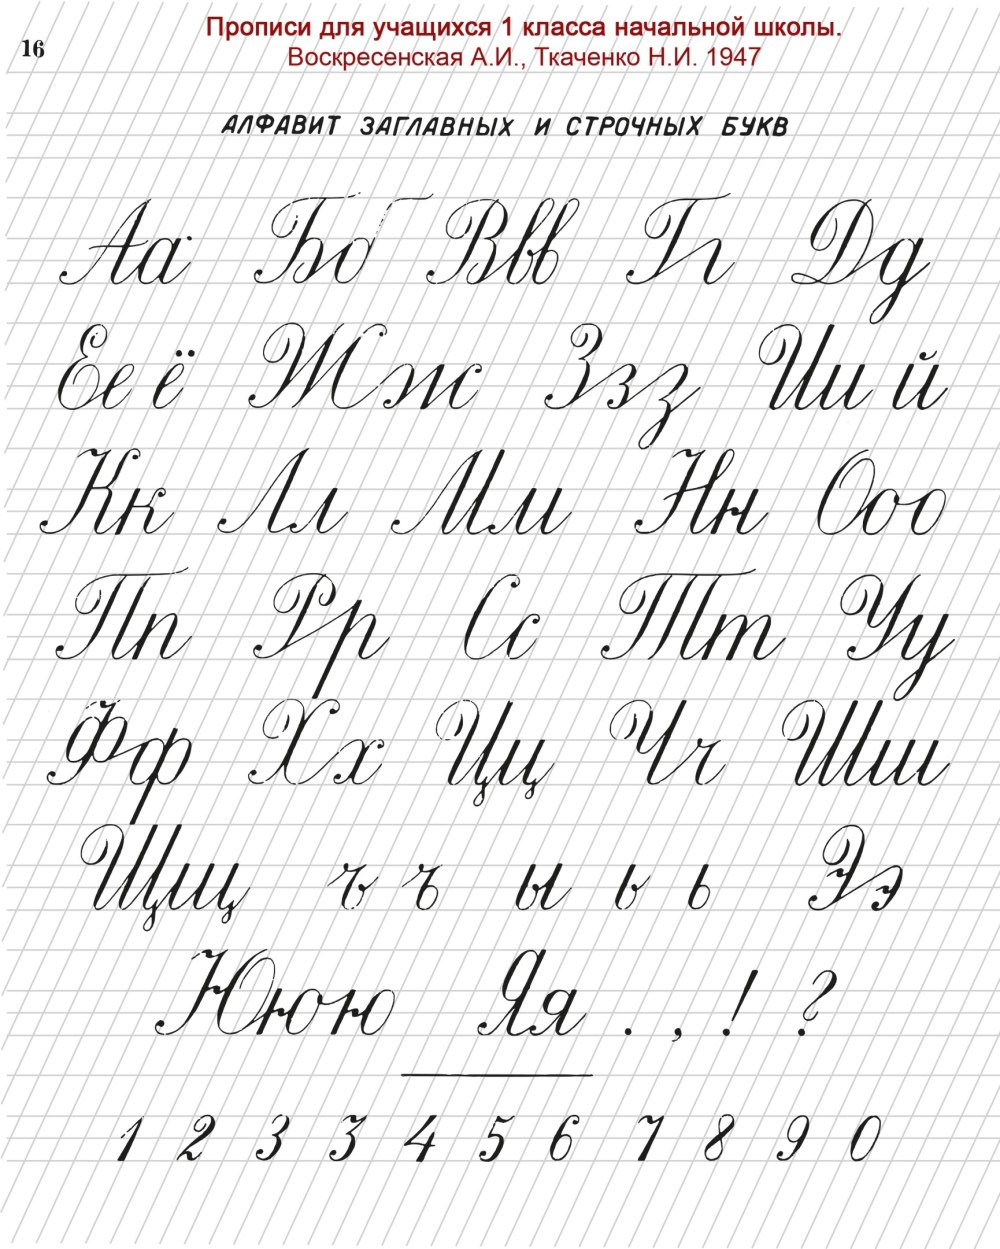 Прописи для учащихся 1 класса начальной школы.
16
Воскресенская А.И., Ткаченко Н.И. 1947
АЛФАВИТ ЗАГЛАВНЫХ И СТРОЧНЫХ БУКВ
Аа Бб Ввв Гг Дд
Ее ё Жж Ззз Ии й
Кк Лл Мм Нн Ооо
Пп Рр Сс Тт Уу
Фф Хх Цц Чч Шш
Щщ ъ ъ ы ь ь Ээ
Ююю Яя . , ! ?
1 2 3 3 4 5 6 7 8 9 0